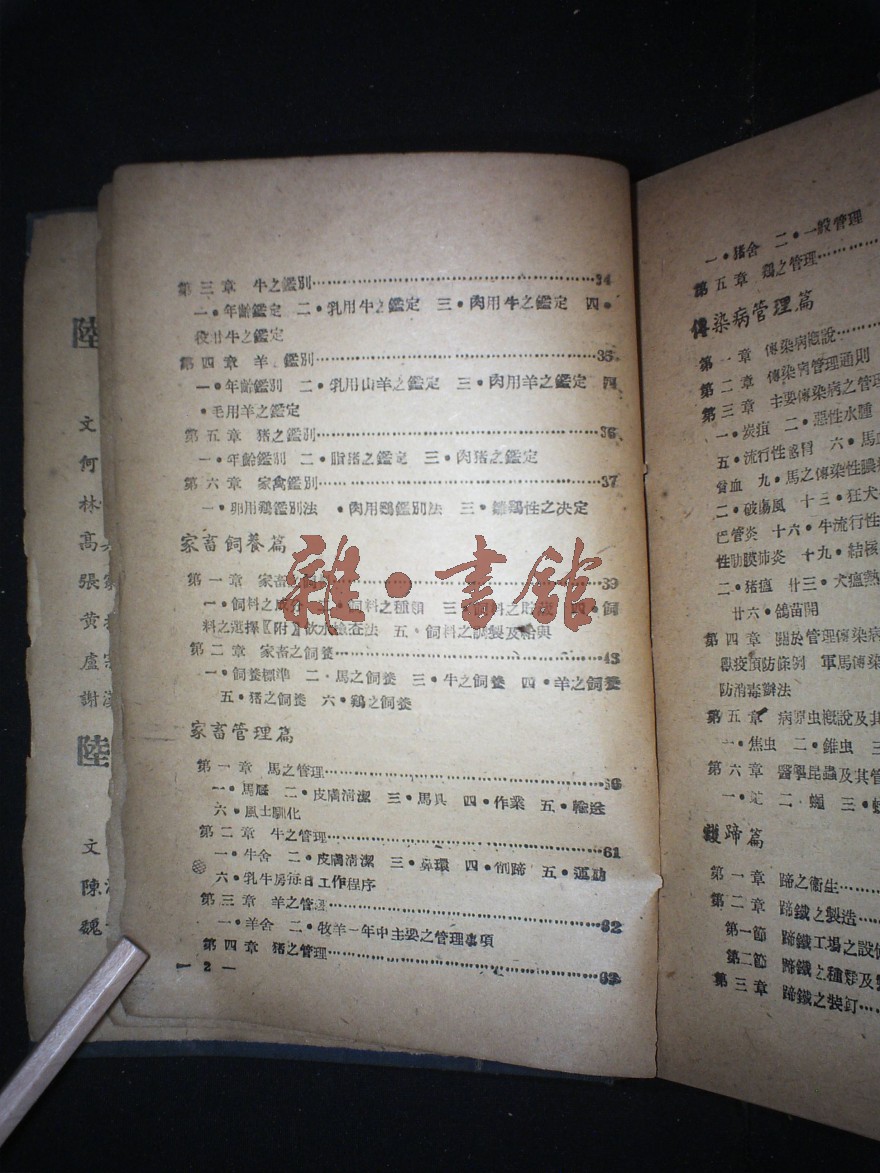 第三章 牛之鑑別……34
一•年齡鑑定 二•乳用牛之鑑定 三•肉用牛之鑑定 四•
役廿牛之鑑定
第四章 羊 鑑別……35
一•年齡鑑別 二•乳用山羊之鑑定 三•肉用羊之鑑定 四
•毛用羊之鑑定
第五章 猪之鑑別……36
一•年齡鑑別 二•脂猪之鑑定 三•肉猪之鑑定
第六章 家禽鑑別……37
一•卵用鷄鑑別法 •肉用鷄鑑別法 三•雛鷄性之决定
家畜飼養篇
第一章 家畜……39
一•飼料之成分 •飼料之種類 三•飼料之貯 四•飼
料之選擇〖附〗飲水檢查法 五•飼料之調製及給與
第二章 家畜之飼養……43
一•飼養標準 二•馬之飼養 三•牛之飼養 四•羊之飼養
五•猪之飼養 六•鷄之飼養
家畜管理篇
第一章 馬之管理……
一•馬廐 二•皮膚淸潔 三•馬具 四•作業 五•輸送
六•風土馴化
第二章 牛之管理……61
一•牛舍 二•皮膚淸潔 三•鼻環 四•削蹄 五•運動
六•乳牛房每日工作程序
第三章 羊之管理……62
一•羊舍 二•牧羊一年中主要之管理事項
第四章 猪之管理……63
— 2 —
雜•書館
一•猪舍 二•一般管理
第五章 鷄之管理……
傳染病管理篇
第一章 傳染病槪說……
第二章 傳染病管理通則
第三章 主要傳染病之管理
一•炭疽 二•惡性水腫
五•流行性感冒 六•馬
血 九•馬之傳染性
二•破傷風 十三•狂犬
巴管炎 十六•牛流行性
性肋膜肺炎 十九•結核
二•猪瘟 廿三•犬瘟熱
廿六•鴿
第四章 關於管理傳染病
獸疫預防條例 軍馬傳染
防消毒辦法
第五章 病原虫槪說及其
一•焦虫 二•錐虫 三
第六章 醫學昆蟲及其管
一• 二•蠅 三•
蹄篇
第一章 蹄之衞生……
第二章 蹄鐵之製造……
第一節 蹄鐵工場之設備
第二節 蹄鐵之種類及
第三章 蹄鐵之裝釘……
陸
文
何
林
高
張
黄
盧
謝
陸
文
陳
魏